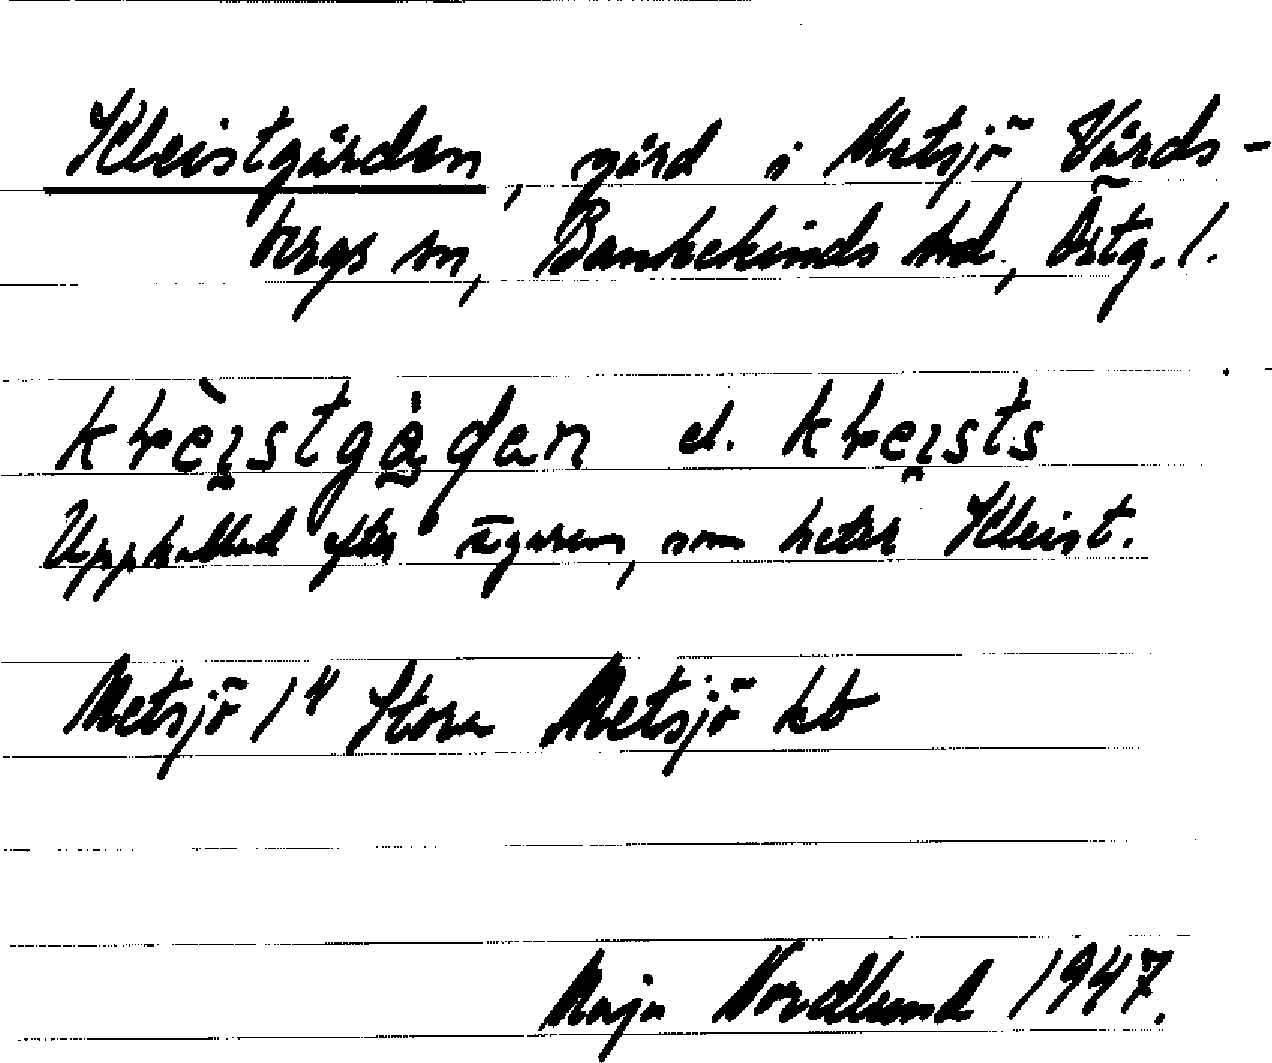 Kleistgården, gård i Metsjö Vårds-
bergs sn, Bankekinds hd, Östg. l.
klèi̯stgå̀ḍan el. klei̯sts
Uppkallad efter ägaren, som heter Kleist.
Metsjö 1⁴ Stora Metsjö kb
Maja Nordlund 1947.